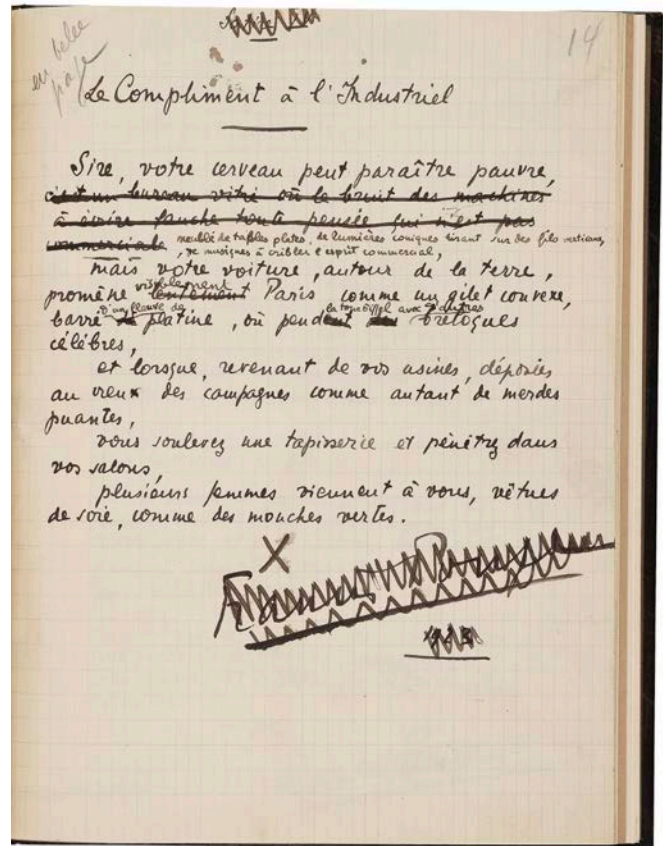 en belle
page
14
Le Compliment à l'Industriel
Sire, votre cerveau peut paraître pauvre,
c'est un bureau vitré où le bruit des machines
à écrire fauche toute pensée qui n'est pas
commerciale, meublé de tables plates, de lumières coniques tirant sur des fils verticaux,
, de musiques à cribler l'esprit commercial,
mais votre voiture, autour de la terre,
visiblement
promène lentement Paris comme un gilet convexe,
d'un fleuve de la tour Eiffel avec d'autres
barré de platine, où pendent des breloques
célèbres,
et lorsque, revenant de vos usines, déposées
au creux des campagnes comme autant de merdes
puantes,
vous soulevez une tapisserie et pénétrez dans
vos salons,
plusieurs femmes viennent à vous, vêtues
de soie, comme des mouches vertes.
X